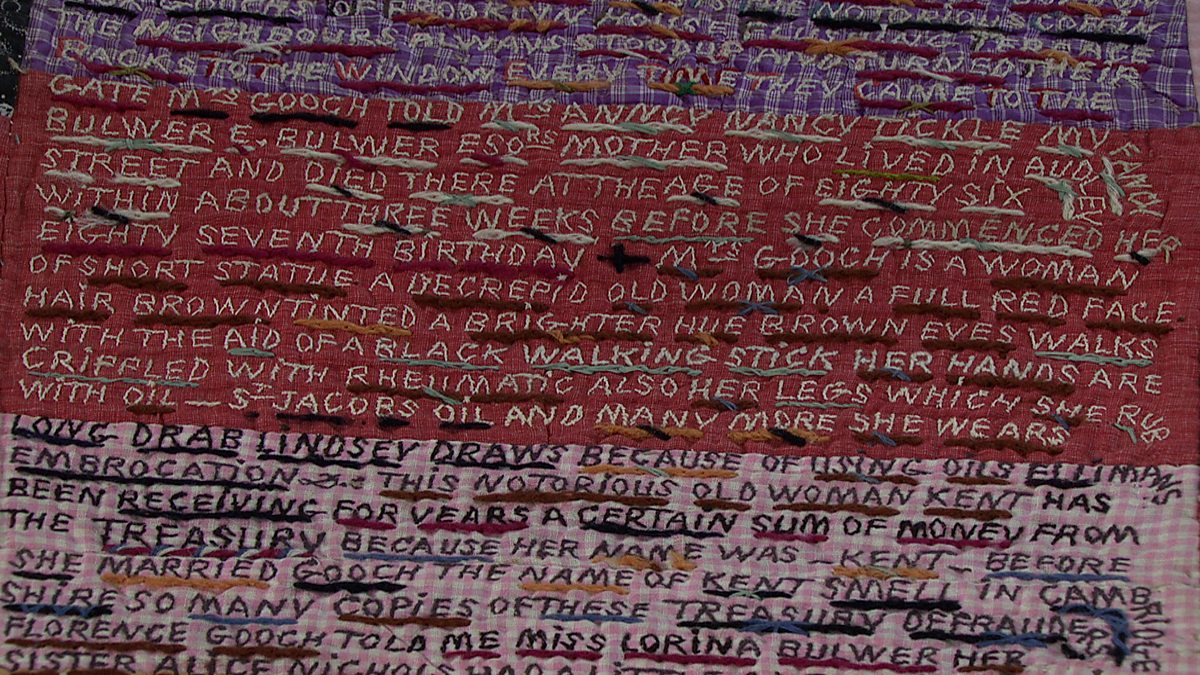 THE NEIGHBOURS ALWAYS STOOD UP AND TURNED THEIR
BACKS TO THE WINDOW EVERY TIME THEY CAME TO THE
GATE MRS GOOCH TOLD ME AWNCY NANCY TICKLE MY FANCY
BULWER E. BULWER ESQRS MOTHER WHO LIVED IN AUDLEY
STREET AND DIED THERE AT THE AGE OF EIGHTY SIX
WITHIN ABOUT THREE WEEKS BEFORE SHE COMMENCED HER
EIGHTY SEVENTH BIRTHDAY + MRS GOOCH IS A WOMAN
OF SHORT STATUE A DECREPID OLD WOMAN A FULL RED FACE
HAIR BROWN TINTED A BRIGHTER HUE BROWN EYES WALKS
WITH THE AID OF A BLACK WALKING STICK HER HANDS ARE
CRIPPLED WITH RHEUMATIC ALSO HER LEGS WHICH SHE RUB
WITH OIL — ST JACOBS OIL AND MANY MORE SHE WEARS
LONG DRAB LINDSEY DRAWS BECAUSE OF USING OILS ELLIMANS
EMBROCATION THIS NOTORIOUS OLD WOMAN KENT HAS
BEEN RECEIVING FOR YEARS A CERTAIN SUM OF MONEY FROM
THE TREASURY BECAUSE HER NAME WAS KENT — BEFORE
SHE MARRIED GOOCH THE NAME OF KENT SMELL IN CAMBRIDGE
SHIRE SO MANY COPIES OF THESE TREASURY DEFRAUDERS
FLORENCE GOOCH TOLD ME MISS LORINA BULWER HER
SISTER ALICE NICHOLS HAD A LITTLE